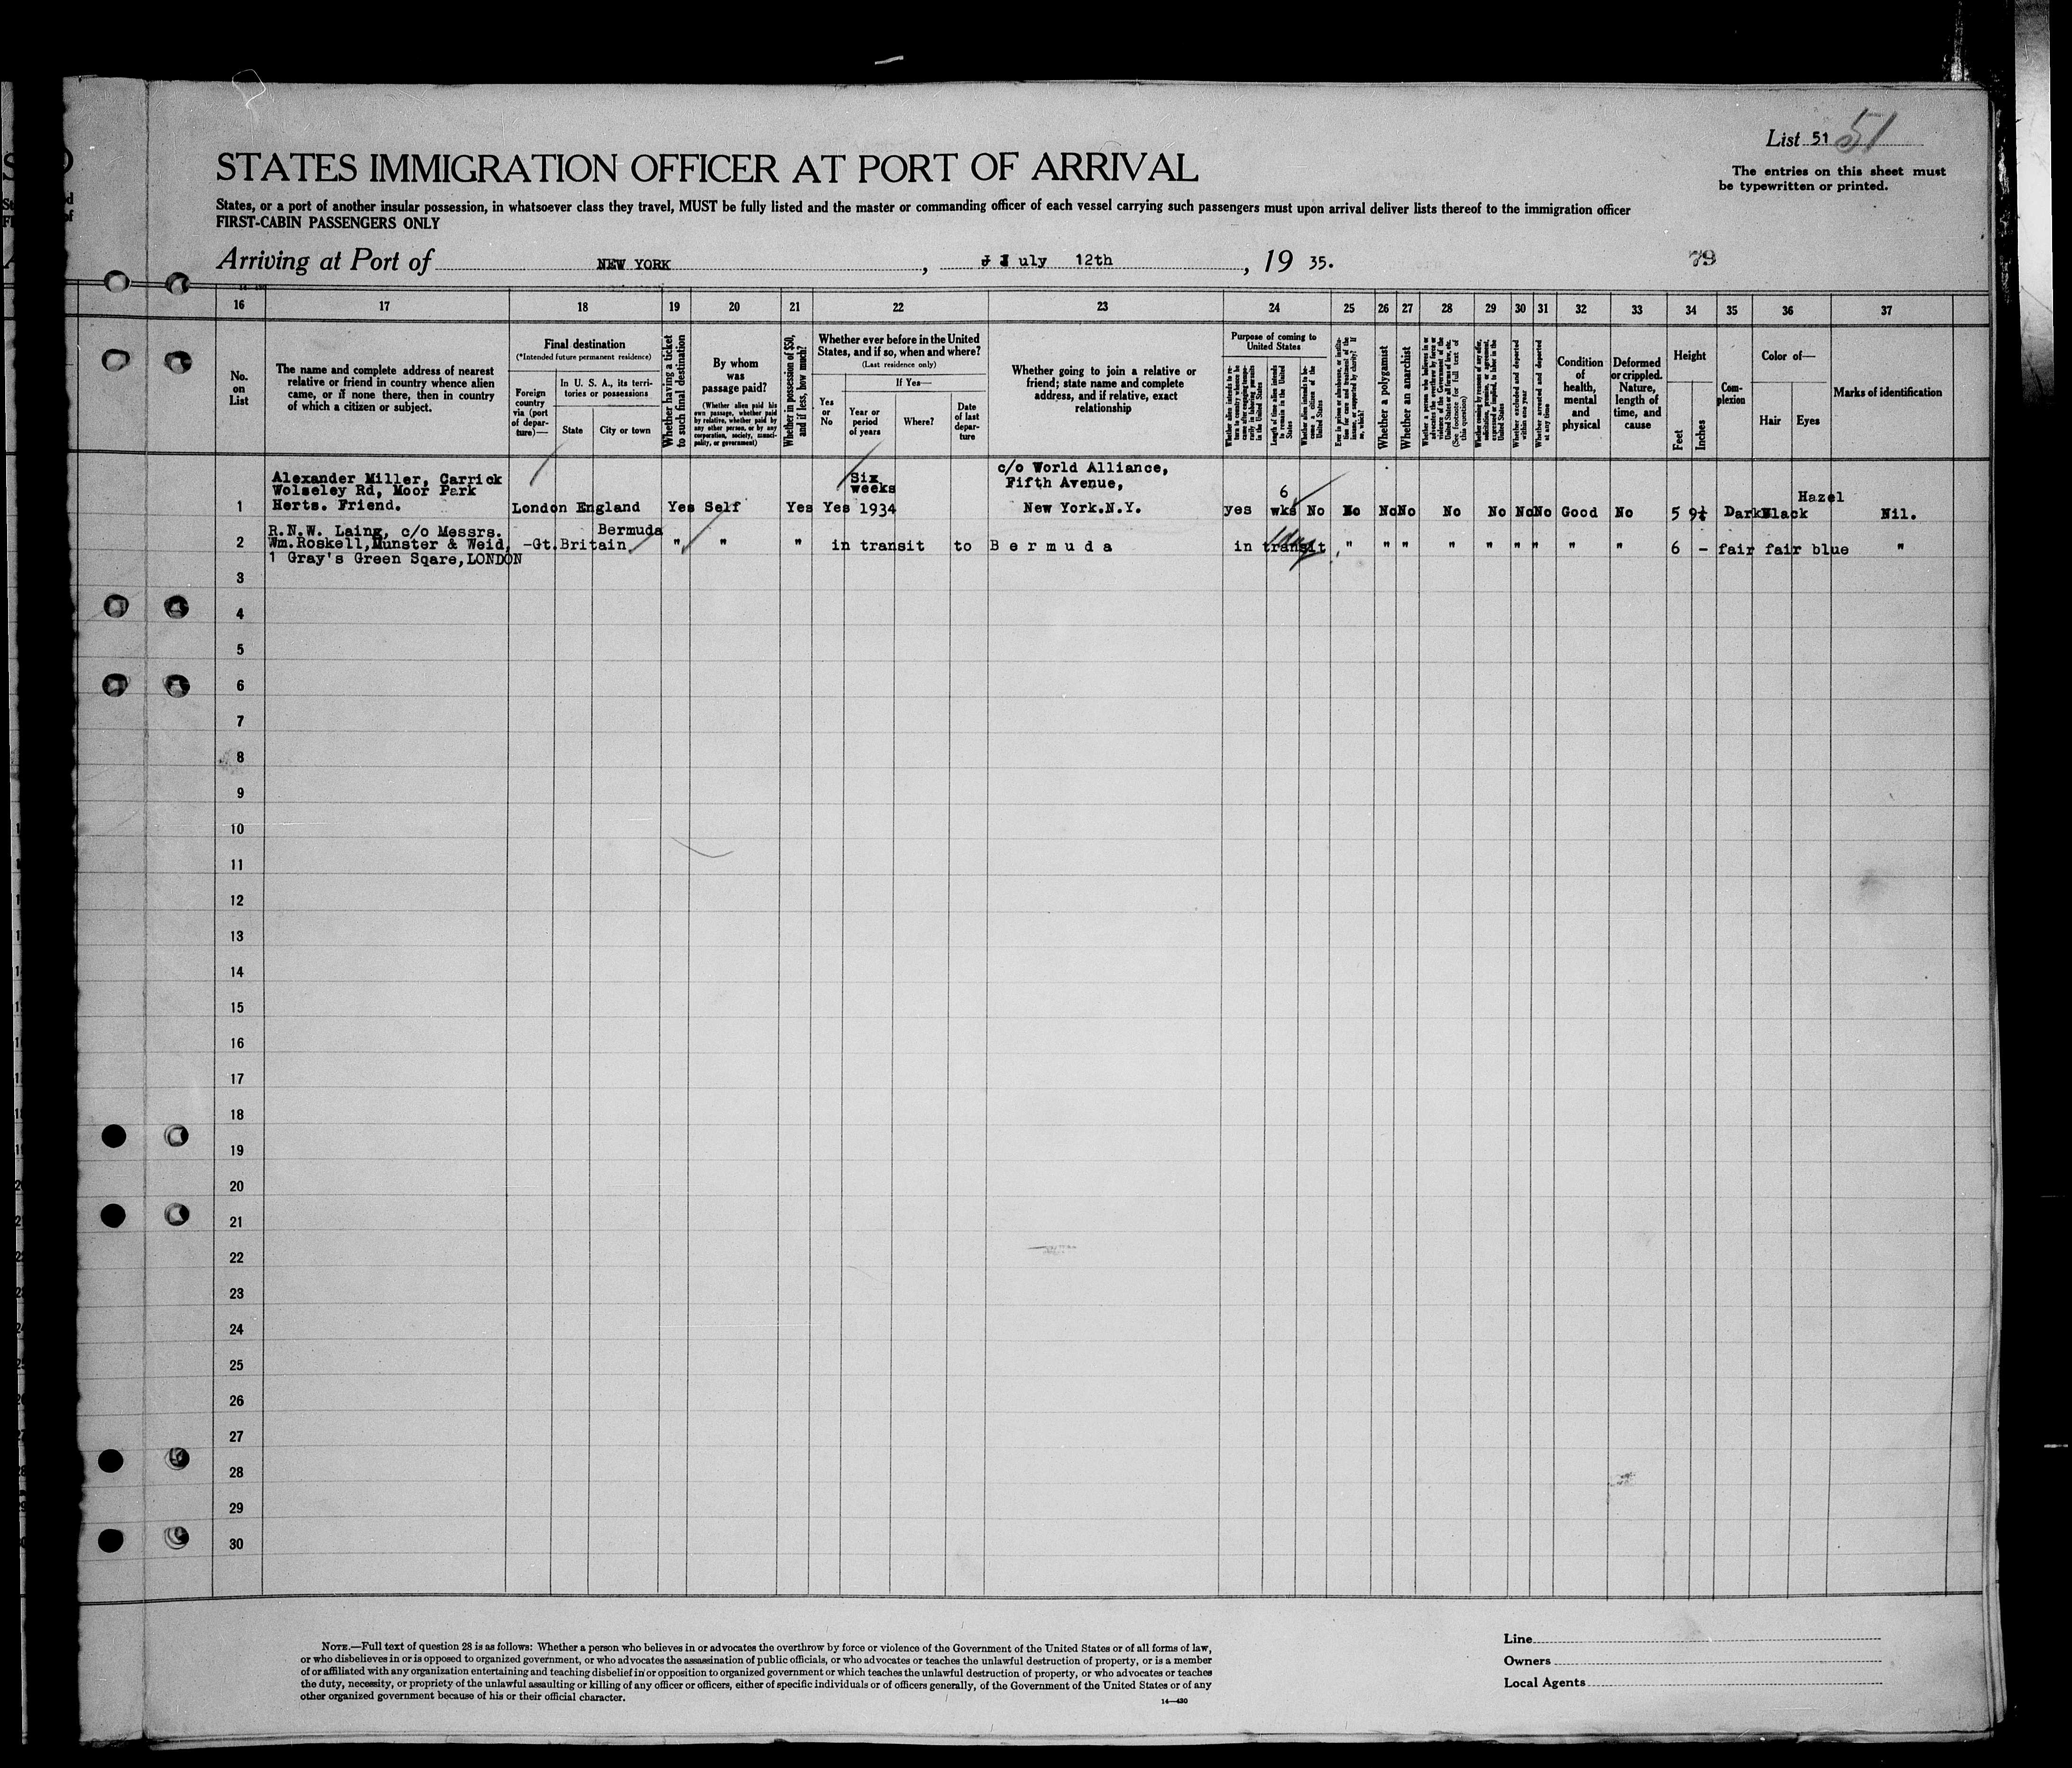 List 51 51
The entries on this sheet must
be typewritten or printed.
STATES IMMIGRATION OFFICER AT PORT OF ARRIVAL
States, or a port of another insular possession, in whatsoever class they travel, MUST be fully listed and the master or commanding officer of each vessel carrying such passengers must upon arrival deliver lists thereof to the immigration officer
FIRST-CABIN PASSENGERS ONLY
Arriving at Port of NEW YORK, July 12th, 19 35.
79
16 17 18 19 20 21 22 23 24 25 26 27 28 29 30 31 32 33 34 35 36 37
No.
on
List
The name and complete address of nearest
relative or friend in country whence alien
came, or if none there, then in country
of which a citizen or subject.
Final destination
(*Intended future permanent residence)
Foreign
country
via (port
of depar-
ture)—
In U. S. A., its terri-
tories or possessions
State
City or town
Whether having a ticket
to such final destination
By whom
was
passage paid?
(Whether alien paid his
own passage, whether paid
by relative, whether paid by
any other person, or by any
corporation, society, munici-
pality, or government)
Whether in possession of $50,
and if less, how much?
Whether ever before in the United
States, and if so, when and where?
(Last residence only)
Yes
or
No
If Yes—
Year or
period
of years
Where?
Date
of last
depar-
ture
Whether going to join a relative or
friend; state name and complete
address, and if relative, exact
relationship
Purpose of coming to
United States
Length of time alien intends
to remain in the United
States
Whether alien intends to be-
come a citizen of the
United States
Whether a polygamist
Whether an anarchist
Whether excluded and deported
within one year
Whether arrested and deported
at any time
Condition
of
health,
mental
and
physical
Deformed
or crippled.
Nature,
length of
time, and
cause
Height
Feet
Inches
Com-
plexion
Color of—
Hair
Eyes
Marks of identification
Alexander Miller, Carrick
Wolseley Rd, Moor Park
Herts. Friend.
1 London England Yes Self Yes Yes Six weeks 1934
c/o World Alliance,
Fifth Avenue,
New York.N.Y.
yes 6 wks No No No No No No No No Good No 5 9½ Dark Black Hazel Nil.
R.N.W. Laing, c/o Messrs.
Wm.Roskell,Munster & Weid,
1 Gray's Green Sqare,LONDON
2 -Gt.Britain Bermuda " " " in transit to Bermuda in transit " " " " " " " " " 6 - fair fair blue "
3
4
5
6
7
8
9
10
11
12
13
14
15
16
17
18
19
20
21
22
23
24
25
26
27
28
29
30
NOTE.—Full text of question 28 is as follows: Whether a person who believes in or advocates the overthrow by force or violence of the Government of the United States or of all forms of law,
or who disbelieves in or is opposed to organized government, or who advocates the assassination of public officials, or who advocates or teaches the unlawful destruction of property, or is a member
of or affiliated with any organization entertaining and teaching disbelief in or opposition to organized government or which teaches the unlawful destruction of property, or who advocates or teaches
the duty, necessity, or propriety of the unlawful assaulting or killing of any officer or officers, either of specific individuals or of officers generally, of the Government of the United States or of any
other organized government because of his or their official character.
14—430
Line
Owners
Local Agents